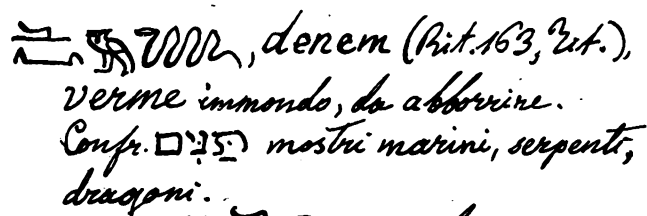 , denem (Rit. 163, Tit.),
verme immondo, da abborrire.
Confr. תַּנִּים mostri marini, serpenti,
dragoni.